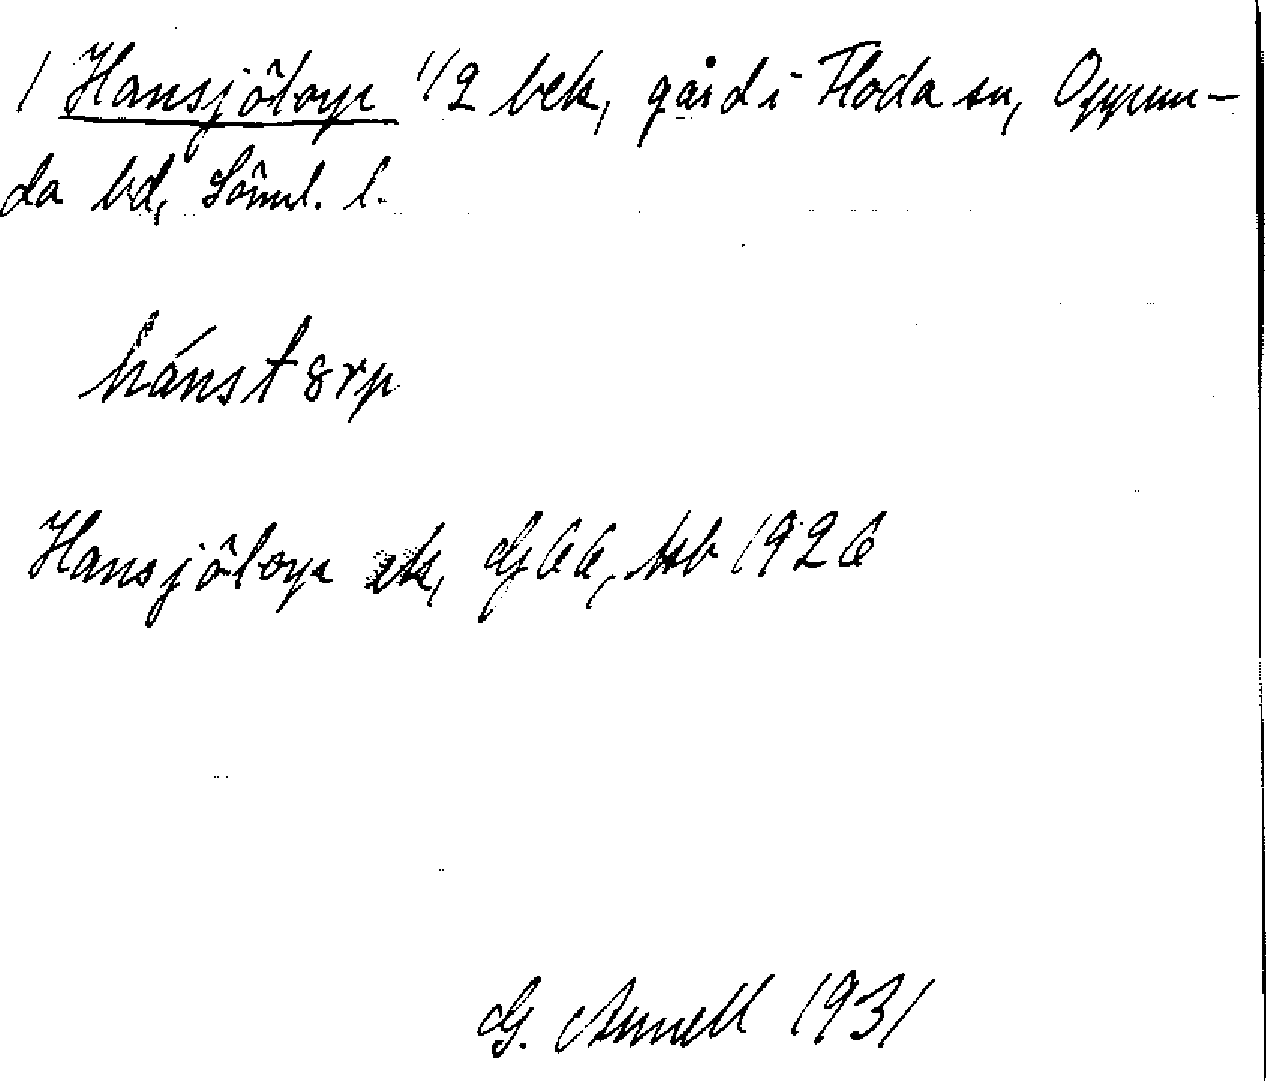 1 Hansjötorp 1/2 bek, gård i Floda sn, Oppun-
da hd, Söml. l.
hánst8rp
Hansjötorp ek, GEK 66, hb 1926
G. Annell 1931